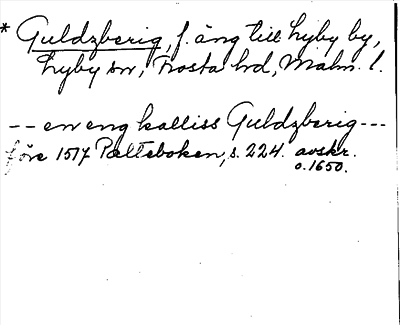 * Guldzberig, f. äng till Lyby by,
Lyby sn, Frosta hd, Malm. l.
-- en eng kalliss Guldzberig ---
före 1517 Palteboken, s. 224. avskr.
o. 1650.